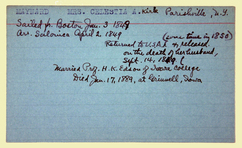 MAYNARD MRS. CELESTIA A. Kirk Parishville, N.Y.
Sailed fr. Boston Jan. 3 1849
Arr. Salonica April 2 1849 (some time in 1850)
Returned to U.S.A. & released
on the death of her husband,
Sept. 14, 1849
Married Prof. H. K. Edson of Iowa College
Died Jan. 17, 1889, at Grinnell, Iowa